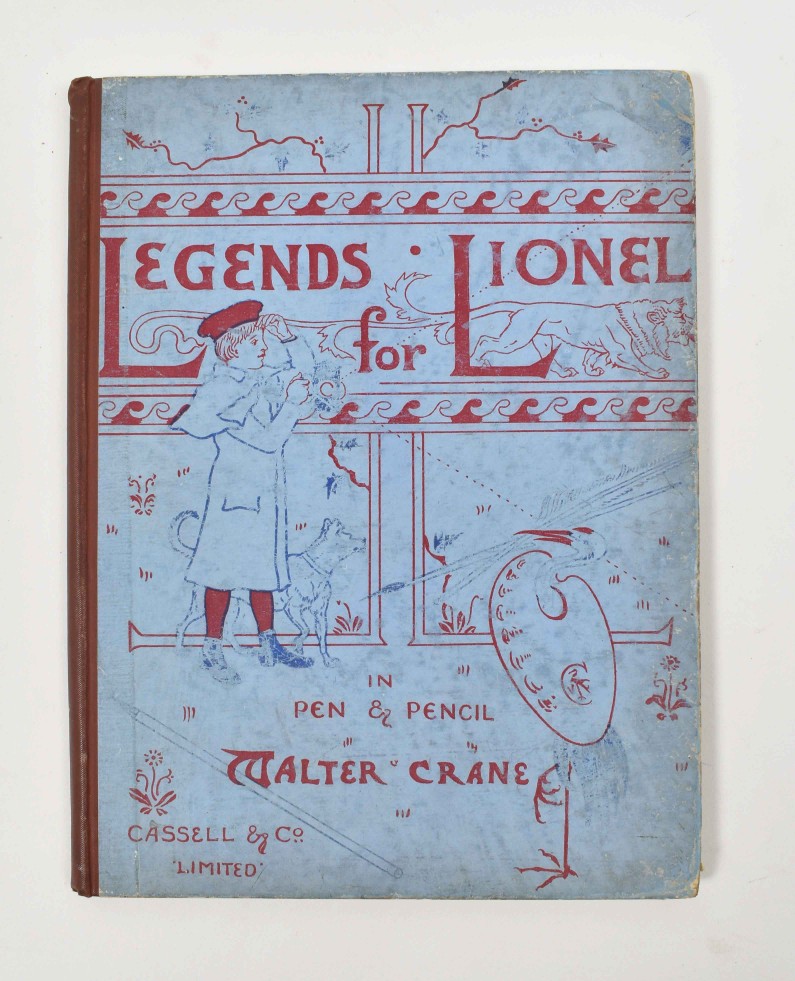 LEGENDS · LIONEL
for
IN
PEN & PENCIL
WALTER CRANE
CASSELL & Co.
LIMITED